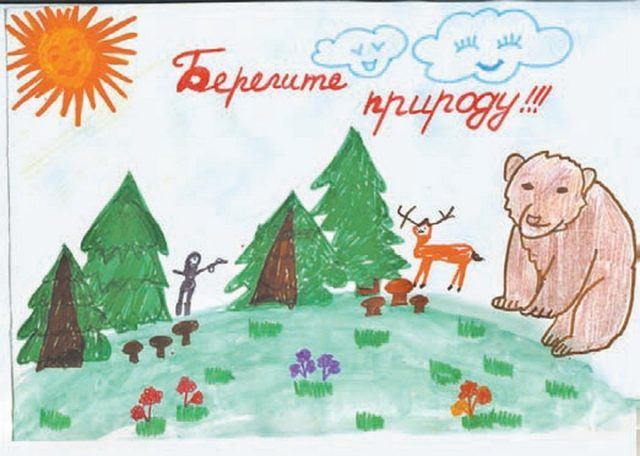 Берегите
природу!!!